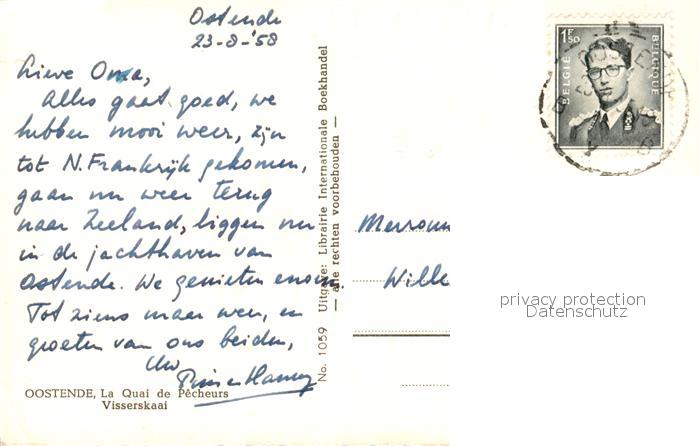 Ostende
23-8-'58
Lieve Oma,
Alles gaat goed, we
hebben mooi weer, zijn
tot N. Frankrijk gekomen,
gaan nu weer terug
naar Zeeland, liggen nu
in de jachthaven van
Ostende. We genieten enorm.
Tot ziens maar weer, en
groeten van ons beiden,
Uw
OOSTENDE, La Quai de Pêcheurs
Visserskaai
No. 1059 Uitgave: Librairie Internationale Boekhandel
— alle rechten voorbehouden —
1F50
BELGIE
BELGIQUE
Mevrouw
Wille
privacy protection
Datenschutz